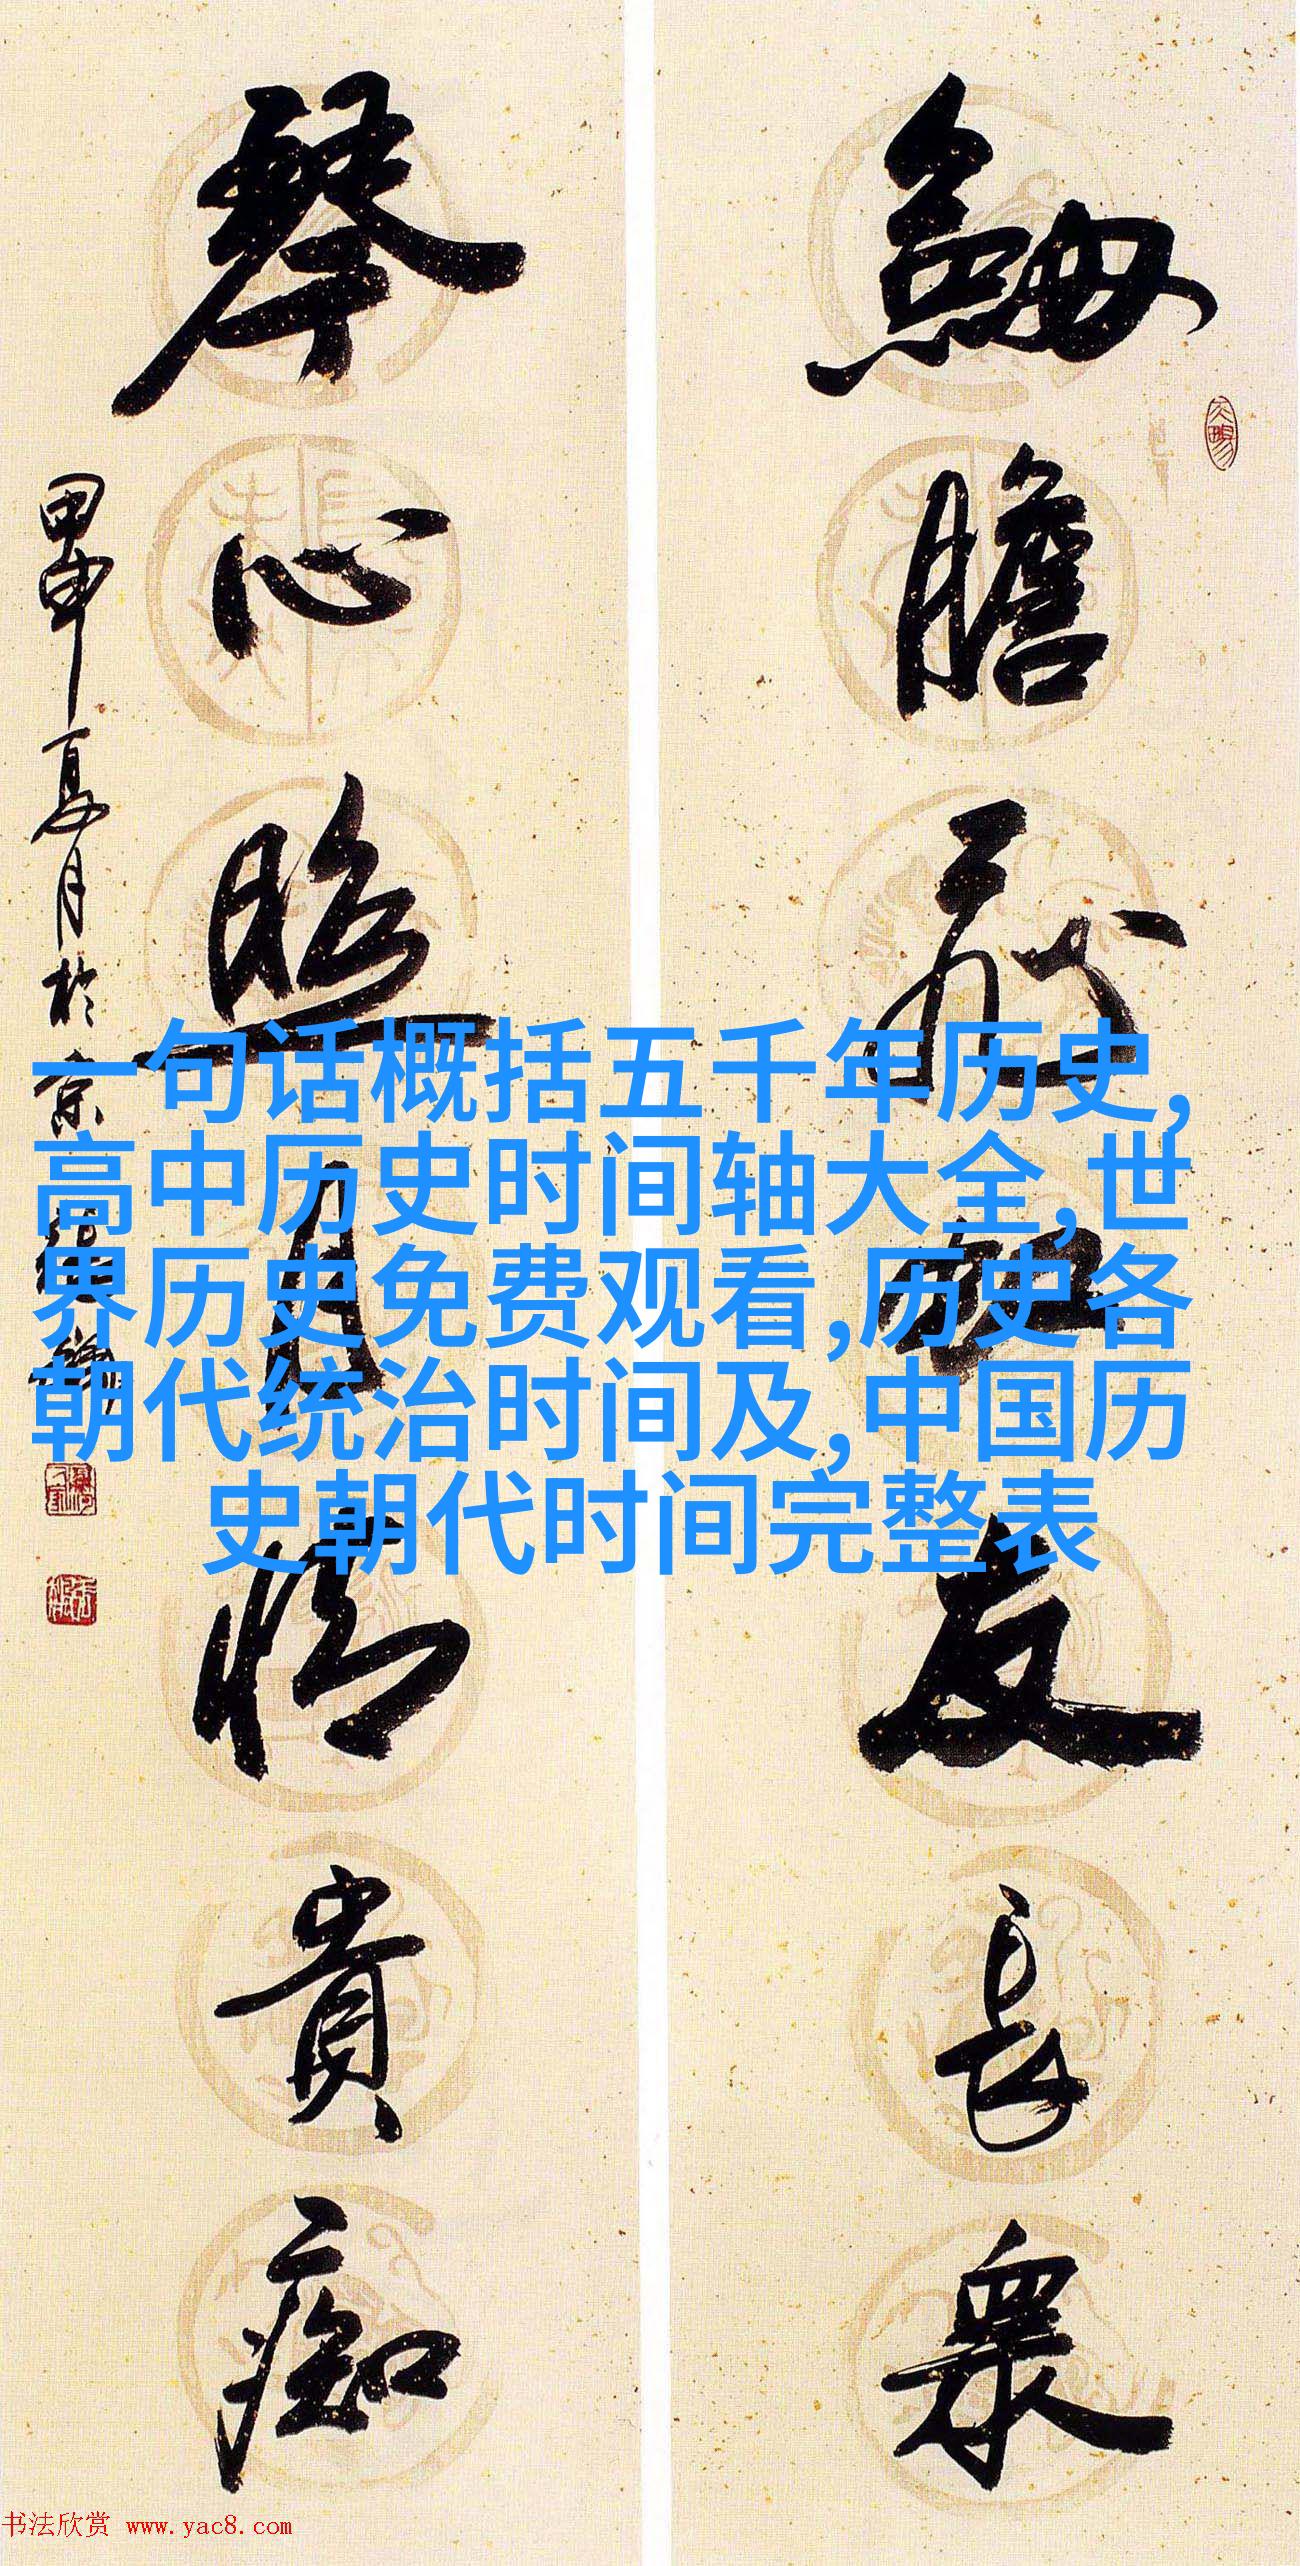 膽友長衆
琴心照月情貴痴
甲申夏月於京
一句话概括五千年历史,
高中历史时间轴大全,世
界历史免费观看,历史各
朝代统治时间及,中国历
史朝代时间完整表
书法欣赏 www.yac8.com